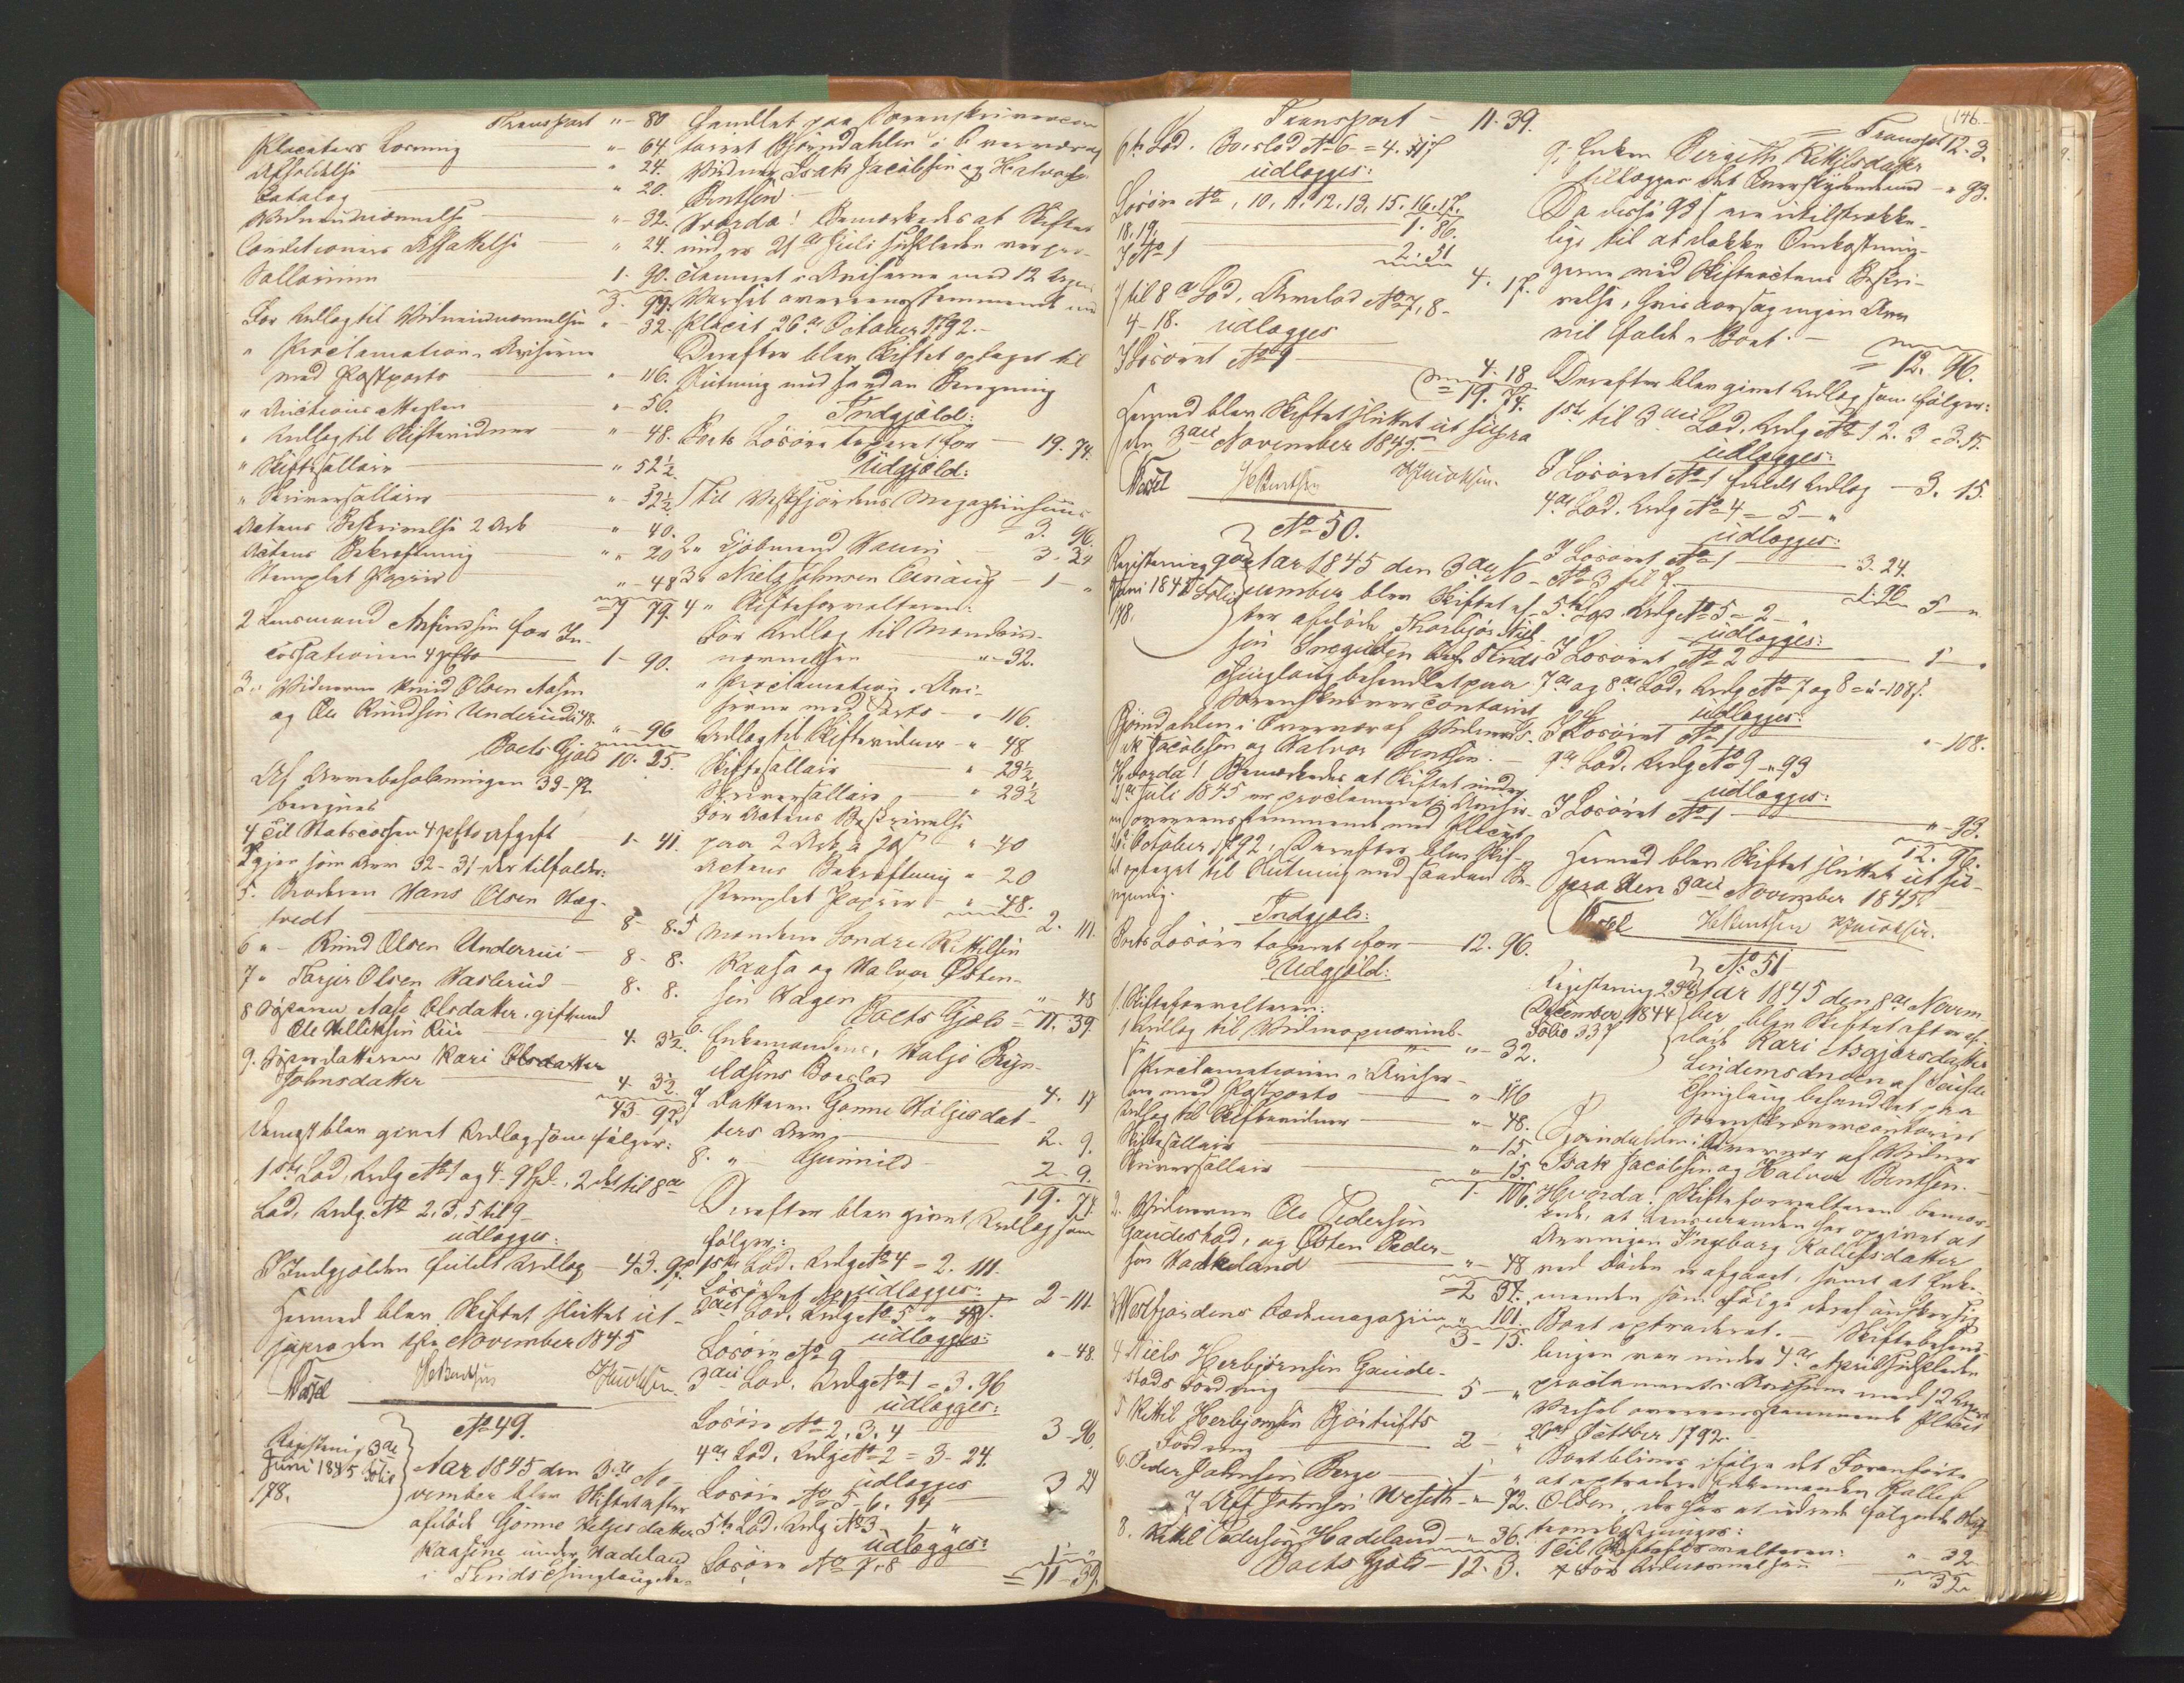 Transport " - 80
Placaters Losning " - 64
Afholdelse " 24.
Catalog " 20.
Vidneudnævnelse " - 32.
Conditioners Affattelse " 24.
Sallarium 1 - 90.
3. 94.
For Udlæg til Vidneudnævnelsen " - 32.
" Proclamation i Aviserne
med Postporto " - 116.
" Auctions Attesten " - 56.
" Udlæg til Skiftevidner " - 48.
" Skiftesallair " 52½
" Skriversallair " - 52½
Actens Beskrivelse 2 Ark " 40.
Actens Bekræftning " " 20
Stemplet Papir " - 48
= 7 79.
2 Lensmand for In-
cassationen 4 pCto 1 - 90.
3 " Vidnerne Knud Olsen Aasen
og Ole Knudsen Underrud à 48. " - 96
Boets Gjæld 10. 25.
Af Arvebeholdningen 33 - 72
beregnes
4 Til Statscassen 4 pCto Afgift 1 - 41.
Igjen som Arv 32 - 31 der tilfalder:
5. Broderen Hans Olsen Hæg-
tvedt 8 - 8.
6 " - Knud Olsen Underrui - 8 - 8.
7 " Tarjer Olsen Haslerud - 8. 8.
8 Søsteren Aase Olsdatter, gift med
Ole Killiksen Rui 4. 3½.
9. Søsterdatteren Kari Olsdatter
Johnsdatter 4. 3½.
43 - 97
Dernæst blev givet Udlæg som følger:
1ste Lod, Udlg No 1 og 4 - 9 Spd., 2det til 8de
Lod, Udlg. No 2, 3, 5 til 9 -
udlægges:
I Indgjælden fuldt Udlæg - 43. 97
Hermed blev Skiftet sluttet ut
supra den November 1845
Wessel H. Bentsen I. Jacobsen.
No 49.
Registering 3de
Juni 1845 Folio
178.
Aar 1845 den 3die No-
vember blev Skiftet efter
afdøde Gonne Heljesdatter
Kaasene under Hadeland
i Tinds Thinglaug be-
handlet paa Sorenskriverecon-
toiret Bjørndahlen i Overvær af
Vidner Isak Jacobsen og Halvor
Bentsen.
Hvorda! Bemærkedes at Skiftet
under 21de Juli sidstleden var pro-
clameret i Aviserne med 12 Ugers
Varsel overeensstemmende med
Placat 26de October 1792. -
Derefter blev Skiftet optaget til
Slutning med saadan Beregning
Indgjæld:
Boets Løsøre taxeret for - 19. 74.
Udgjæld:
1 Til Vestfjordens Magazinhuus
3. 96.
2 " Gjøbmand Hansen 3 - 24
3 " Niels Johnsen - 1 - "
4 " Skifteforvalteren:
For Udlæg til Mændenes-
nævnelsen " - 32.
" Proclamation i Avi-
serne med Porto - " 116.
Udlæg til Skiftevidner - " 48
Skiftesallair " 23½
Skriversallair " 23½
For Actens Beskrivelse
paa 2 Ark à 20 s " - 40
Actens Bekræftning " - 20
Stemplet Papir - " - 48.
2. 111.
5 Mændene Sondre Kittilsen
Kaasa og Halvor Østen-
sen Hagen " - 48
Boets Gjæld = 11. 39.
6. Enkemandens, Halje
Boeslod 4. 17
7 Datteren Gonne Haljesdat-
ters Arv 2. 9.
8. " Gunnild 2 - 9.
19. 74.
Derefter blev givet Udlæg som
følger:
1ste Lod. Udlg No 4 = 2. 111.
udlægges:
Løsøret No 1 2 - 111.
2det Lod, Udlg No 5 - 48 s.
udlægges:
Løsøre No 9 " - 48.
3die Lod. Udlg No 1 = 3. 96
udlægges:
Løsøre No 2, 3, 4 3 - 96.
4de Lod, Udlg No 2 = 3 - 24.
udlægges
Løsøre No 5 - 6. 3 24
5te Lod, Udlg No 3 - 1 "
udlægges:
Løsøre No 7, 8 1 - "
= 11 - 39.
146.
Transport - 11. 39.
6te Lod. Boeslod No 6 = 4. 17
udlægges:
Løsøre No, 10, 11, 12, 13, 15. 16. 17.
18. 19. 1. 86.
I No 1 2. 31
4. 17.
7 til 8de Lod, Arvelod No 7, 8 -
4 - 18. udlægges
I Løsøret No 1 4. 18
= 19. 74.
Hermed blev Skiftet sluttet ut supra
den 3die November 1845. -
Wessel H. Bentsen I. Jacobsen.
No 50.
Registering
Juni 1845 Folio
178.
Aar 1845 den 3die No-
vember blev Skiftet ef-
ter afdøde Thorbjør Niel-
sen af Tinds
Thinglaug behandlet paa
Sorenskrivercontoiret
Bjørndahlen i Overvær af Vidner Is-
ak Jacobsen og Halvor Bentsen. -
Hvorda! Bemærkedes at Skiftet under
21de Juli 1845 er proclameret i Aviser-
ne overeensstemmende med Placat
26de October 1792. Derefter blev Skif-
tet optaget til Slutning med saadan Be-
regning.
Indgjæld:
Boets Løsøre taxeret for - 12. 96.
Udgjæld:
1. Skifteforvalteren:
Udlæg til Vidneopnævnel-
se " - 32.
Proclamationen i Aviser-
ne med Postporto " - 116
Udlæg til Skiftevidner " - 48.
Skiftesallair " 15.
Skriversallair " 15.
1. 106.
2. Vidnerne Ole Pedersen
Gaudestad, og Østen Peder-
sen Hadeland " - 48
= 2 34.
3 Vestfjordens Kornmagazin " 101.
3 - 15.
4 Niels Herbjørnsen Gaude-
stads Fordring 5 - "
5 Kittil Herbjørnsen Bjørtufts
Fordring 2 - "
6. Peder Johnsen Berge 1 - "
7 Johnsen - " 72.
8. Kittil Pedersen Hadeland - " 36.
Boets Gjæld - 12. 3.
= Transport 12. 3.
9. Enken Birgith Kittilsdatter
tillægges det Overskydende med - " 93.
Da disse 93 s ere utilstrække-
lige til at dække Omkostnin-
gerne med Skifteactens Beskri-
velse, hvis Aarsag ingen Arv
vil falde i Boet. -
= 12. 96.
Derefter blev givet Udlæg som følger:
1ste til 3die Lod. Udlg No 1 2. 3 = 3. 15.
udlægges:
I Løsøret No 1 fuldt Udlæg - 3. 15.
4de Lod. Udlg No 4 = 5 - "
udlægges:
I Løsøret No 1 3 - 24.
No 3 til 7 1. 96 5 - "
5te Lod Udlg No 5 = 2 - "
udlægges:
I Løsøret No 2
7de og 8de Lod, Udlg No 7 og 8 = " - 108 s.
udlægges:
I Løsøret No 1 " - 108.
9de Lod. Udlg No 9 - " 93
udlægges:
I Løsøret No 1 " - 93.
12. 96.
Hermed blev Skiftet sluttet ut su-
pra den 3die November 1845.
Wessel H. Bentsen I. Jacobsen.
No 51
Registering 23de
December 1844
Folio 337
Aar 1845 den 8de Novem-
ber blev Skiftet efter af-
døde Kari Asgjersdatter
Lindemsdnden af
Thinglaug behandlet paa
Sorenskrivercontoiret
Bjørndahlen i Overvær af Vidner
Isak Jacobsen og Halvor Bentsen. -
Hvorda! Skifteforvalteren bemær-
kede, at Lensmanden har opgivet at
Arvingen Ingeborg Kallefsdatter
ved Døden er afgaaet, samt at Enke-
manden som Følge deraf ønsker sig
Boet extraderet. - Skiftebehand-
lingen var under 4de April sidstleden
proclameret i Aviserne med 12 Ugers
Varsel overeensstemmende Placat
26de October 1792. -
Boet bliver ifølge det Foranførte
at extradere Enkemanden Kallef
Olsen, der har at udrede følgende
Omkostninger:
Til Skifteforvalteren:
" - 32
" 32